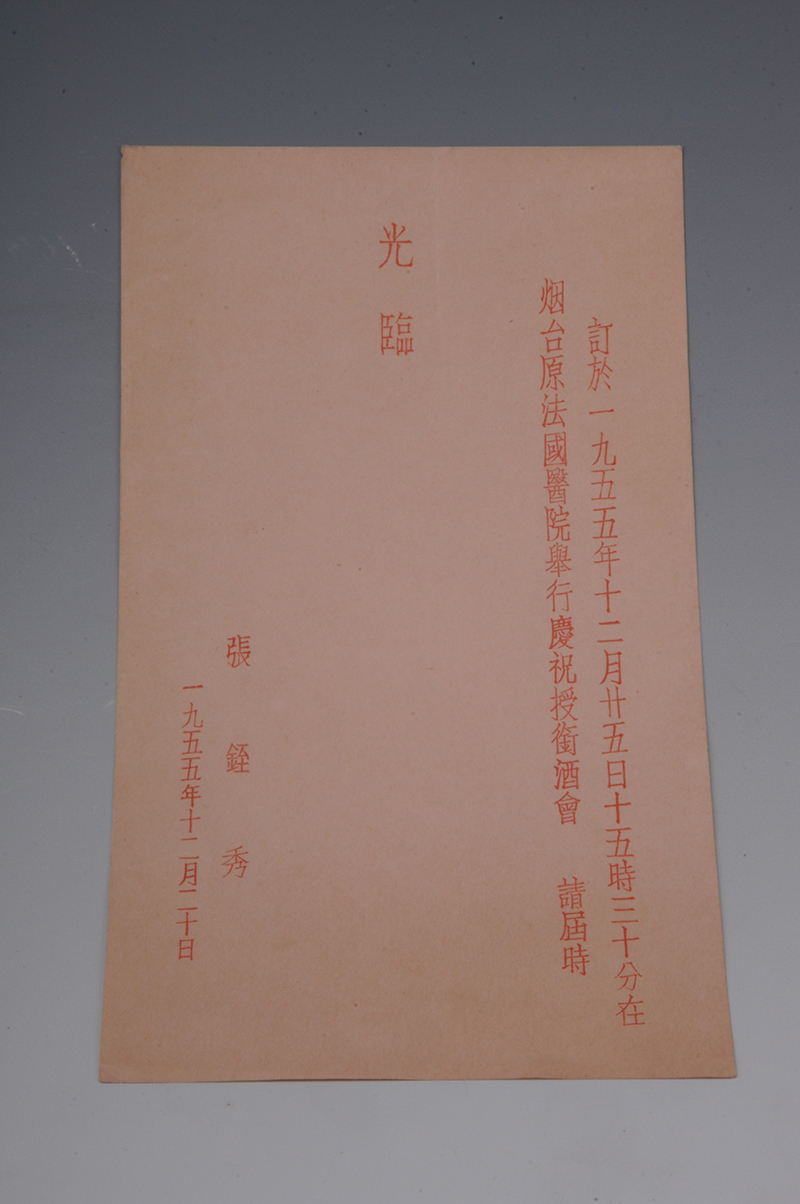 訂於一九五五年十二月廿五日十五時三十分在
烟台原法國醫院舉行慶祝授銜酒會 請屆時
光臨
張銍秀
一九五五年十二月二十日